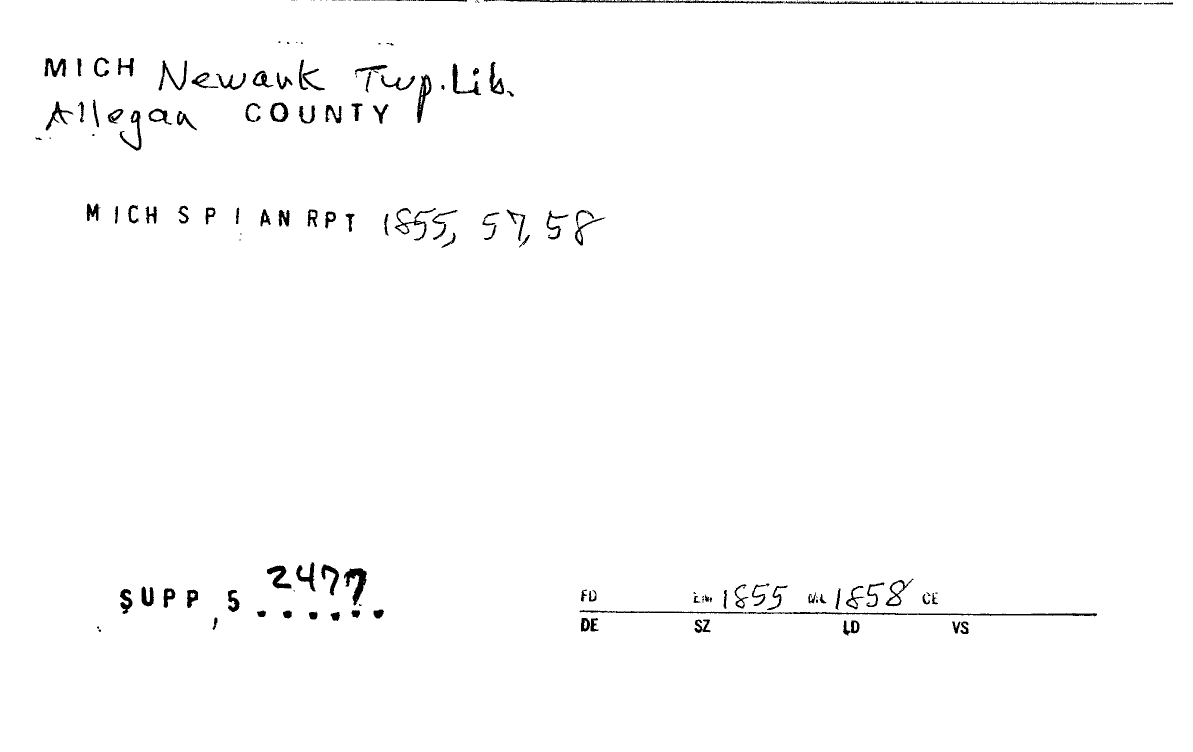 MICH Newark Twp. Lib.
Allegan COUNTY
MICH S P I AN RPT 1855, 57, 58
SUPP, 5 2477
FD 1855 1858 CE
DE SZ LD VS